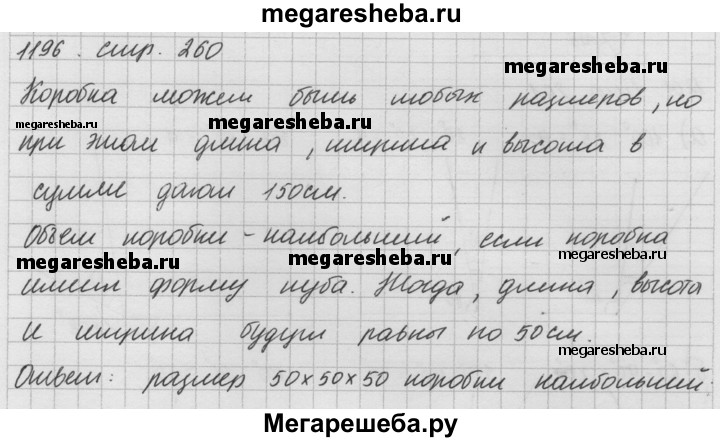 megaresheba.ru
1196. стр. 260
megaresheba.ru
Коробка может быть любых размеров, но
megaresheba.ru
megaresheba.ru
при этом длина, ширина и высота в
сумме дают 150см.
Объем коробки - наибольший, если коробка
megaresheba.ru
megaresheba.ru
megaresheba.ru
имеет форму куба. Тогда, длина, высота
и ширина будут равны по 50см.
megaresheba.ru
Ответ: размер 50×50×50 коробки наибольший.
Мегарешеба.ру